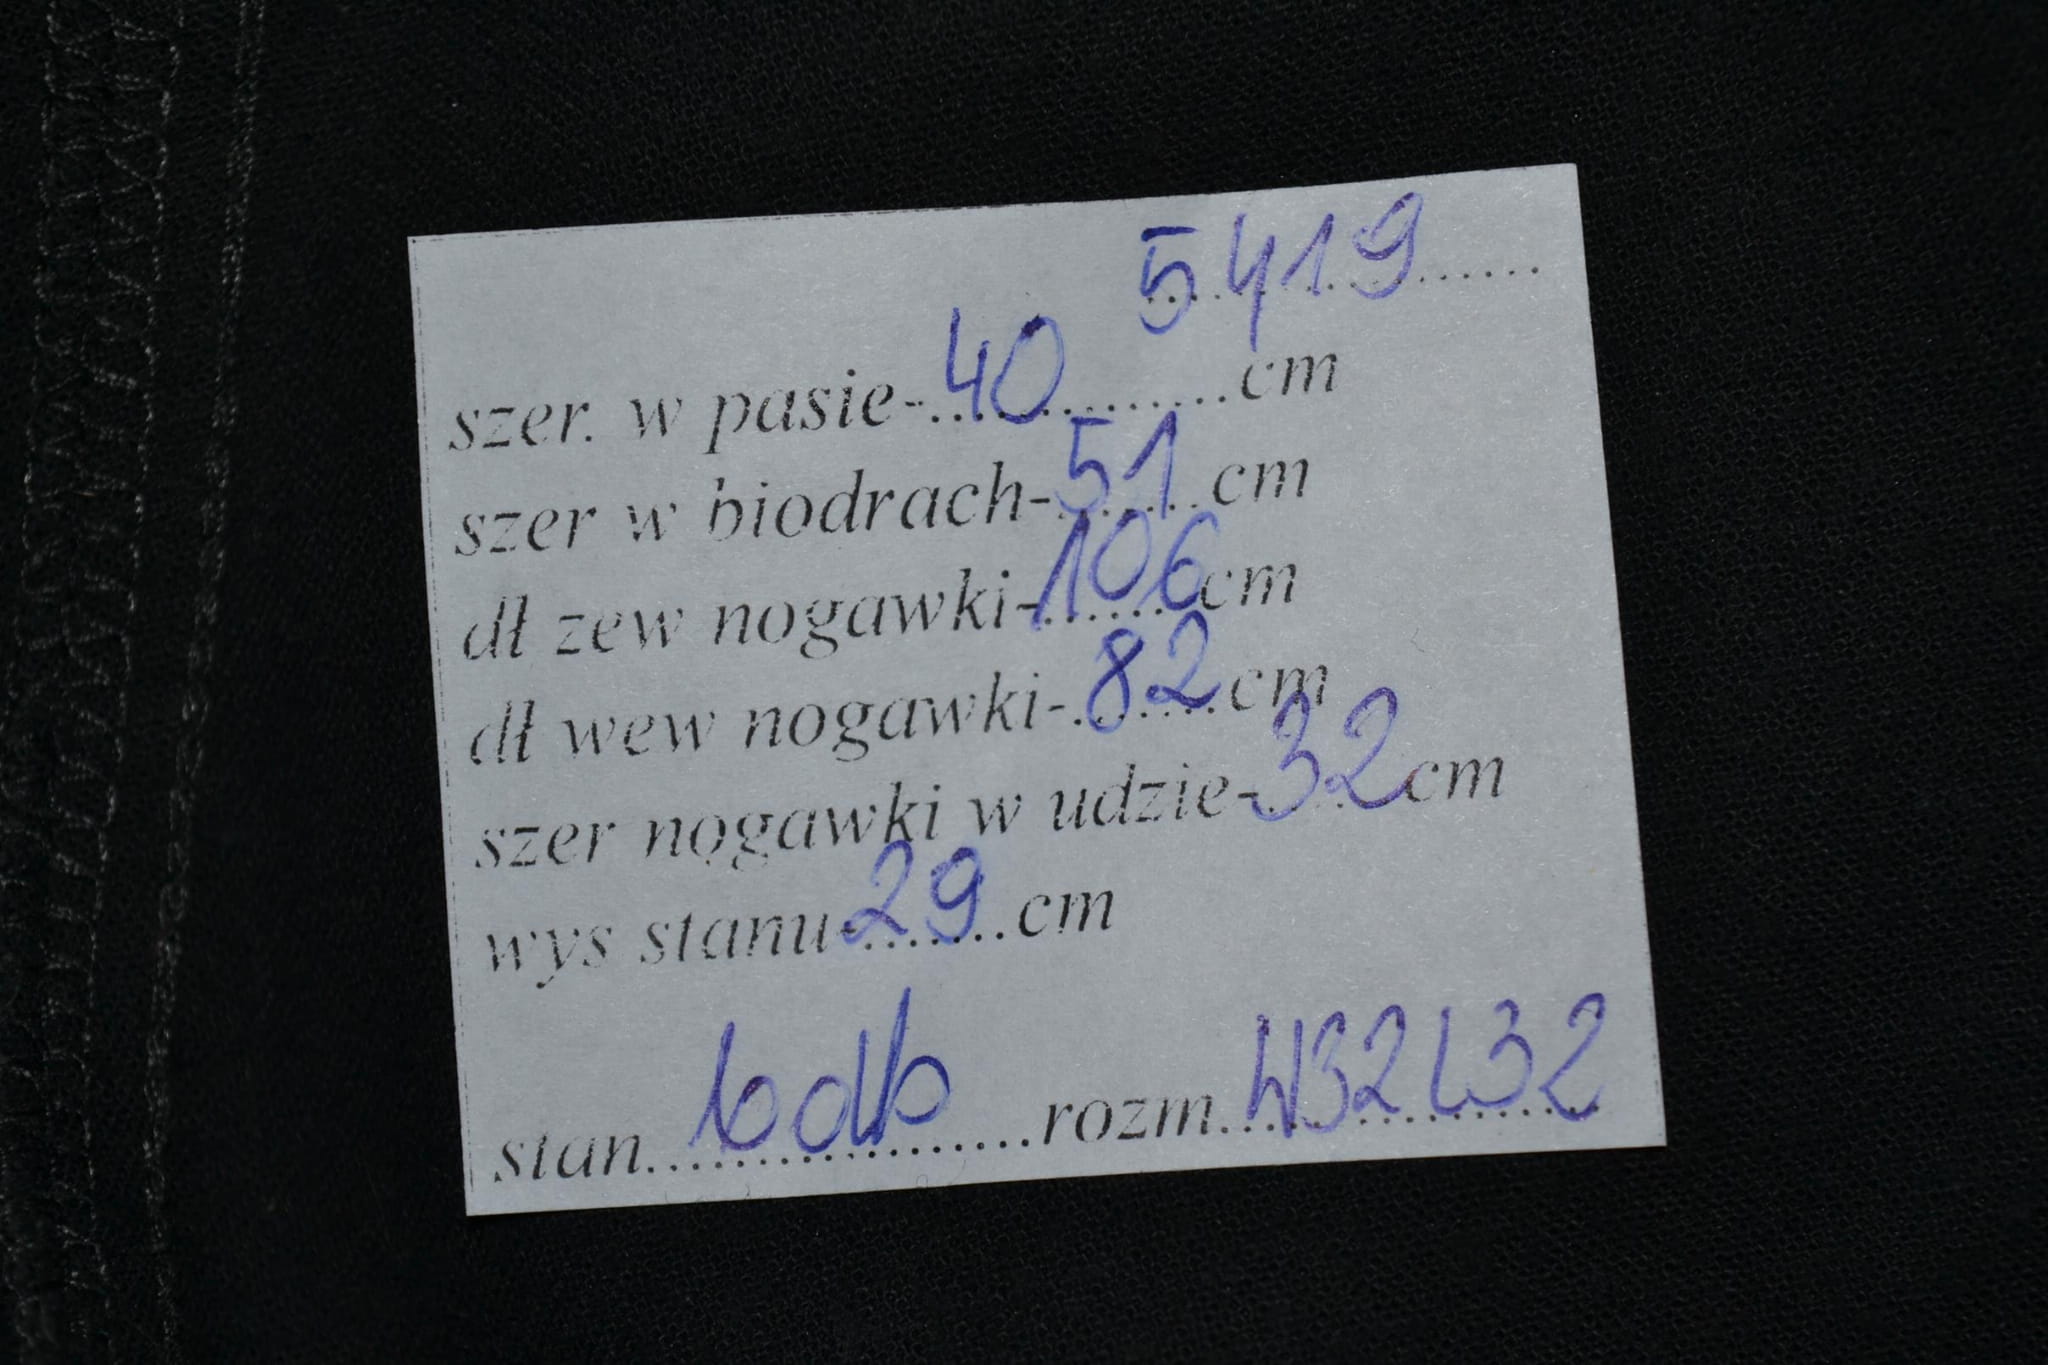 5419
szer. w pasie-..40............cm
szer w biodrach-51.......cm
dł zew nogawki-106.......cm
dł wew nogawki-.82......cm
szer nogawki w udzie-32....cm
wys stanu-29.......cm
stan....bdb...............rozm.W32 L32